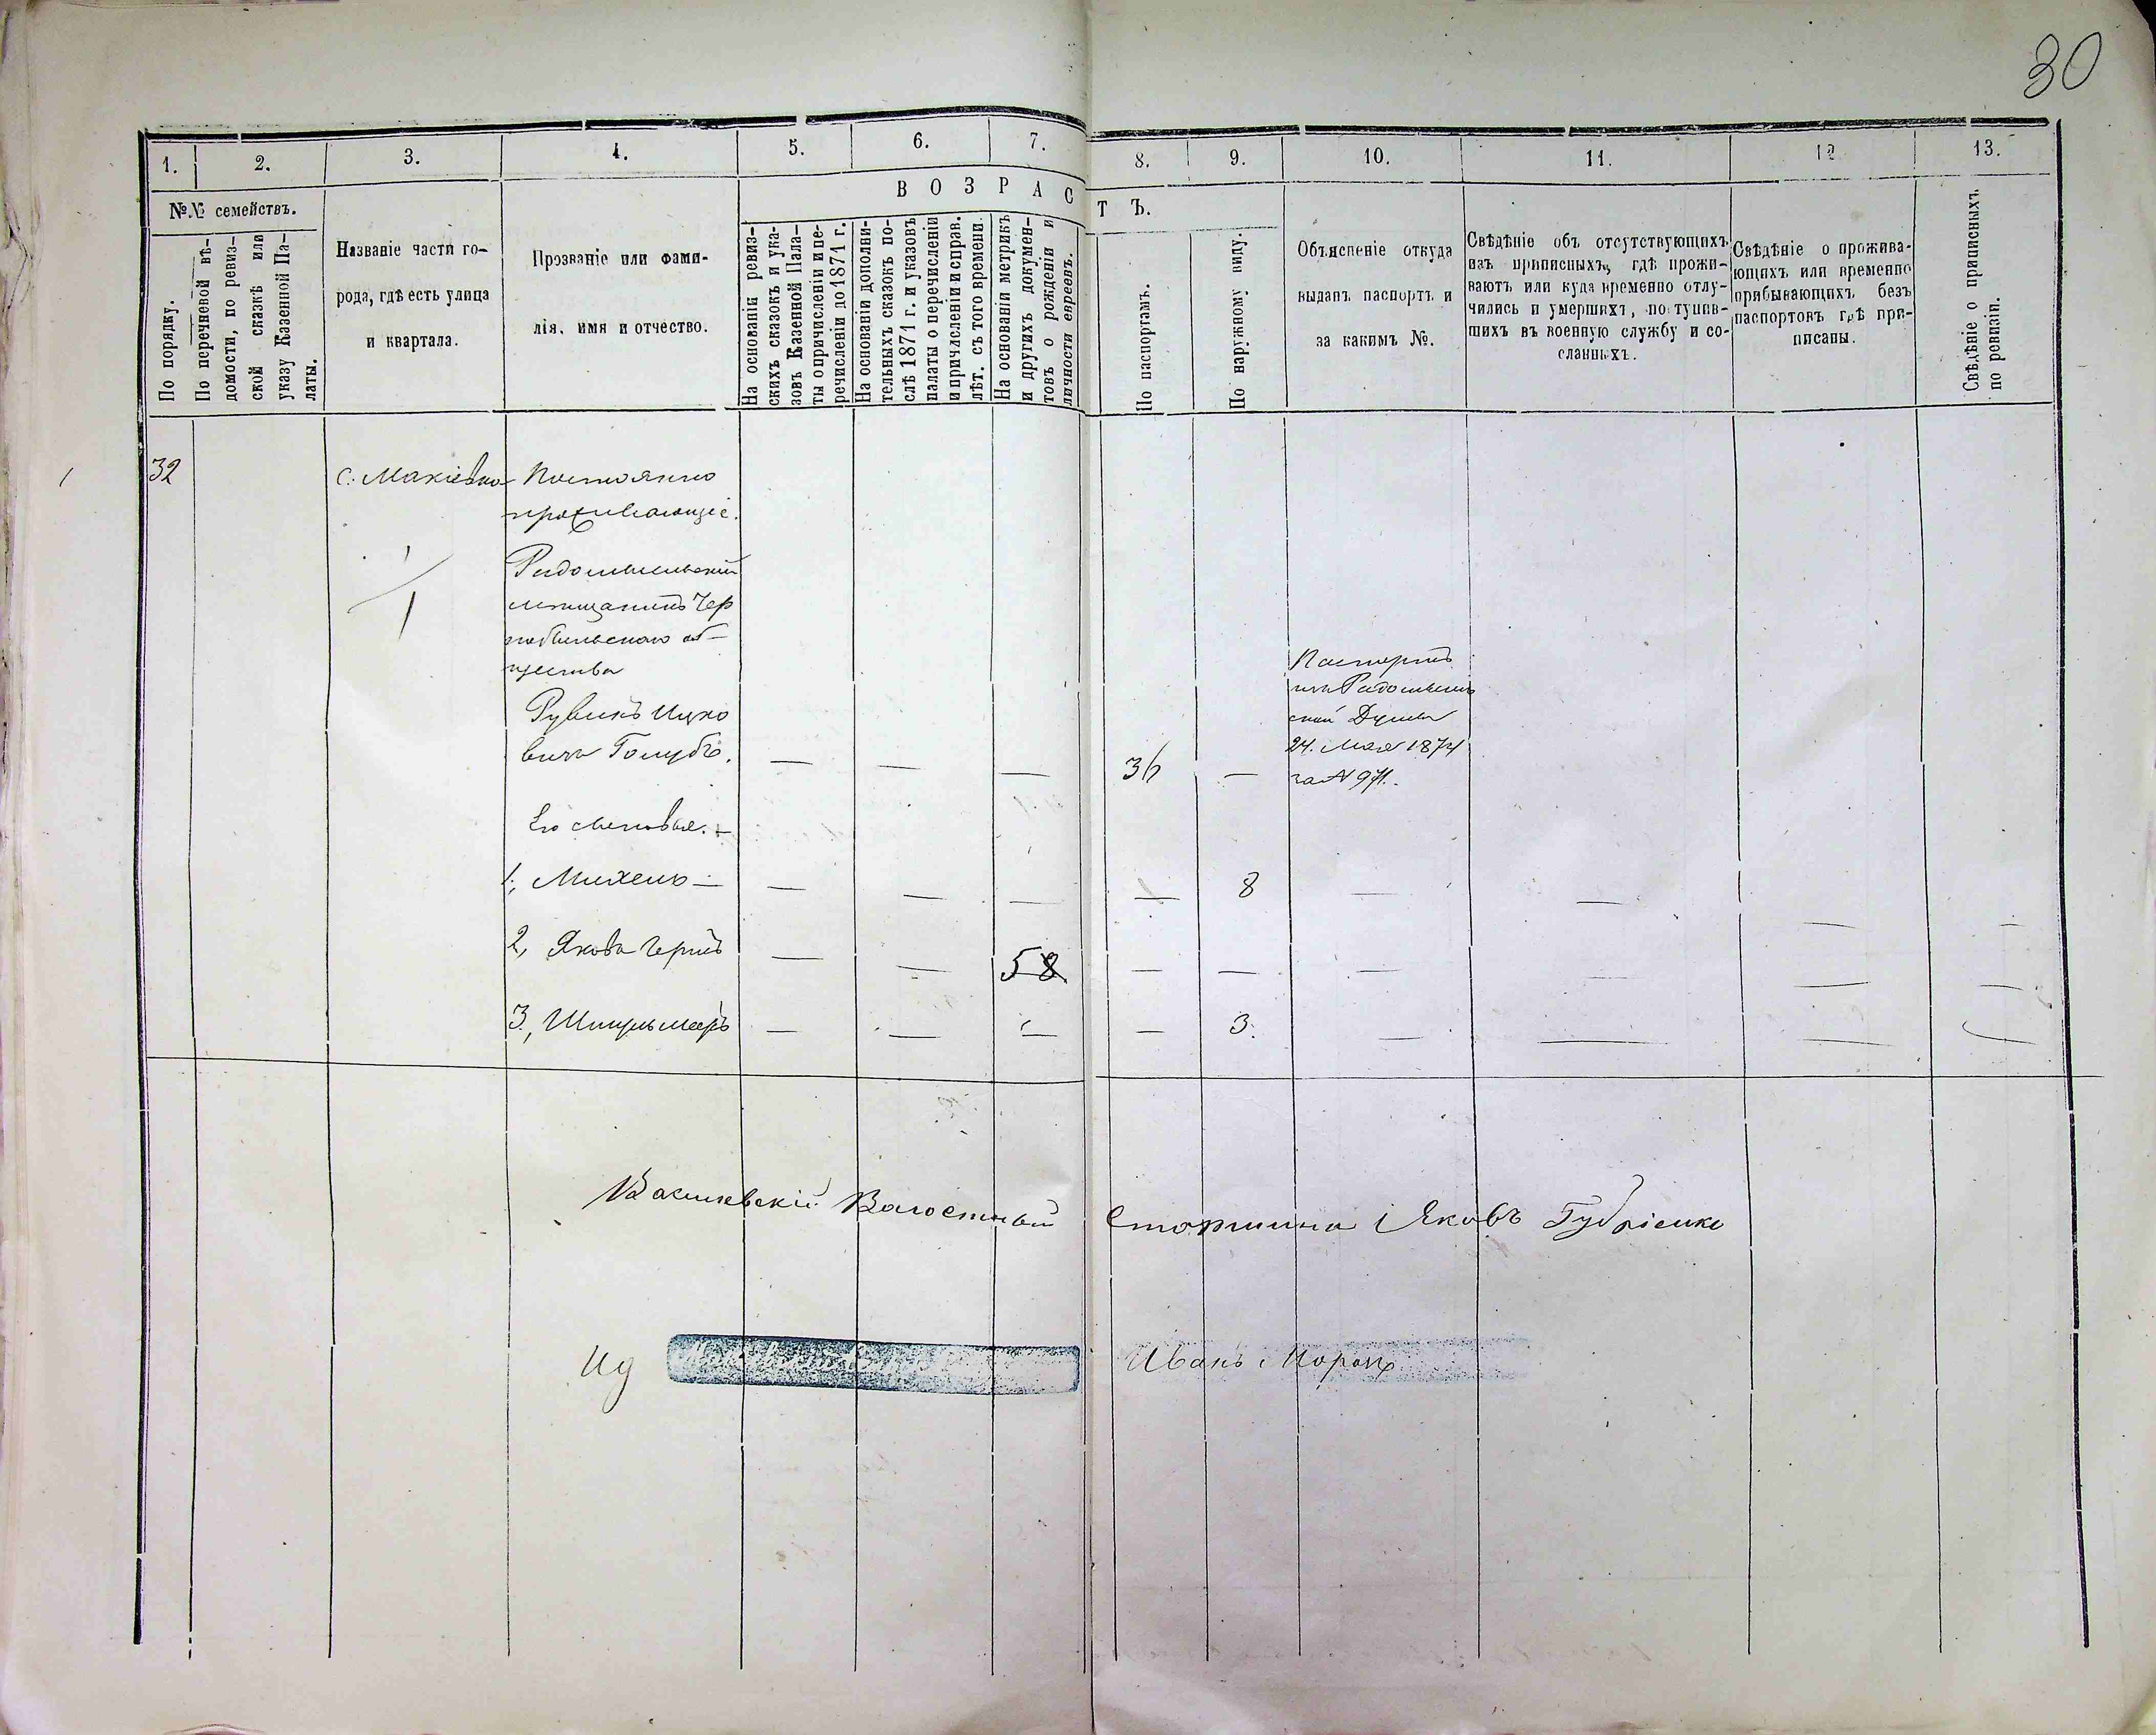 30
1.
2.
3.
4.
5.
6.
7.
8.
9.
10.
11.
12
13.
№№ семействъ.
ВОЗРАСТЪ.
По порядку.
По перечневой вѣ-
домости, по ревиз-
ской сказкѣ или
указу Казенной Па-
латы.
Названіе части го-
рода, гдѣ есть улица
и квартала.
Прозваніе или фами-
лія, имя и отчество.
На основаніи ревиз-
скихъ сказокъ и ука-
зовъ Казенной Пала-
ты о причисленіи и пе-
речисленіи до 1871 г.
На основаніи дополни-
тельныхъ сказокъ по-
слѣ 1871 г. и указовъ
палаты о перечисленіи
и причисленіи и справ.
лѣт. съ того времени.
На основаніи метрикъ
и другихъ докумен-
товъ о рожденіи и
личности евреевъ.
По паспортамъ.
По наружному виду.
Объясненіе откуда
выданъ паспортъ и
за какимъ №.
Свѣдѣніе объ отсутствующихъ
изъ приписныхъ, гдѣ прожи-
ваютъ или куда временно отлу-
чились и умершихъ, поступив-
шихъ въ военную службу и со-
сланныхъ.
Свѣдѣніе о прожива-
ющихъ или временно
прибывающихъ безъ
паспортовъ гдѣ при-
писаны.
Свѣдѣніе о приписныхъ
по ревизіи.
32
с. Макіевка
Постоянно
проживающіе.
Радомысльскій
мѣщанинъ Чер
нобыльскаго об-
щества
Рувинъ Ицко
вичъ Голубъ.
36
Паспортъ
изъ Радомысль
ской Думы
24. Мая 1874
за № 971.
Его сыновья.
1, Михель
8
2, Якова
58
3,
3.
Волостный Старшина Яковъ
Ид
Иванъ Мороз